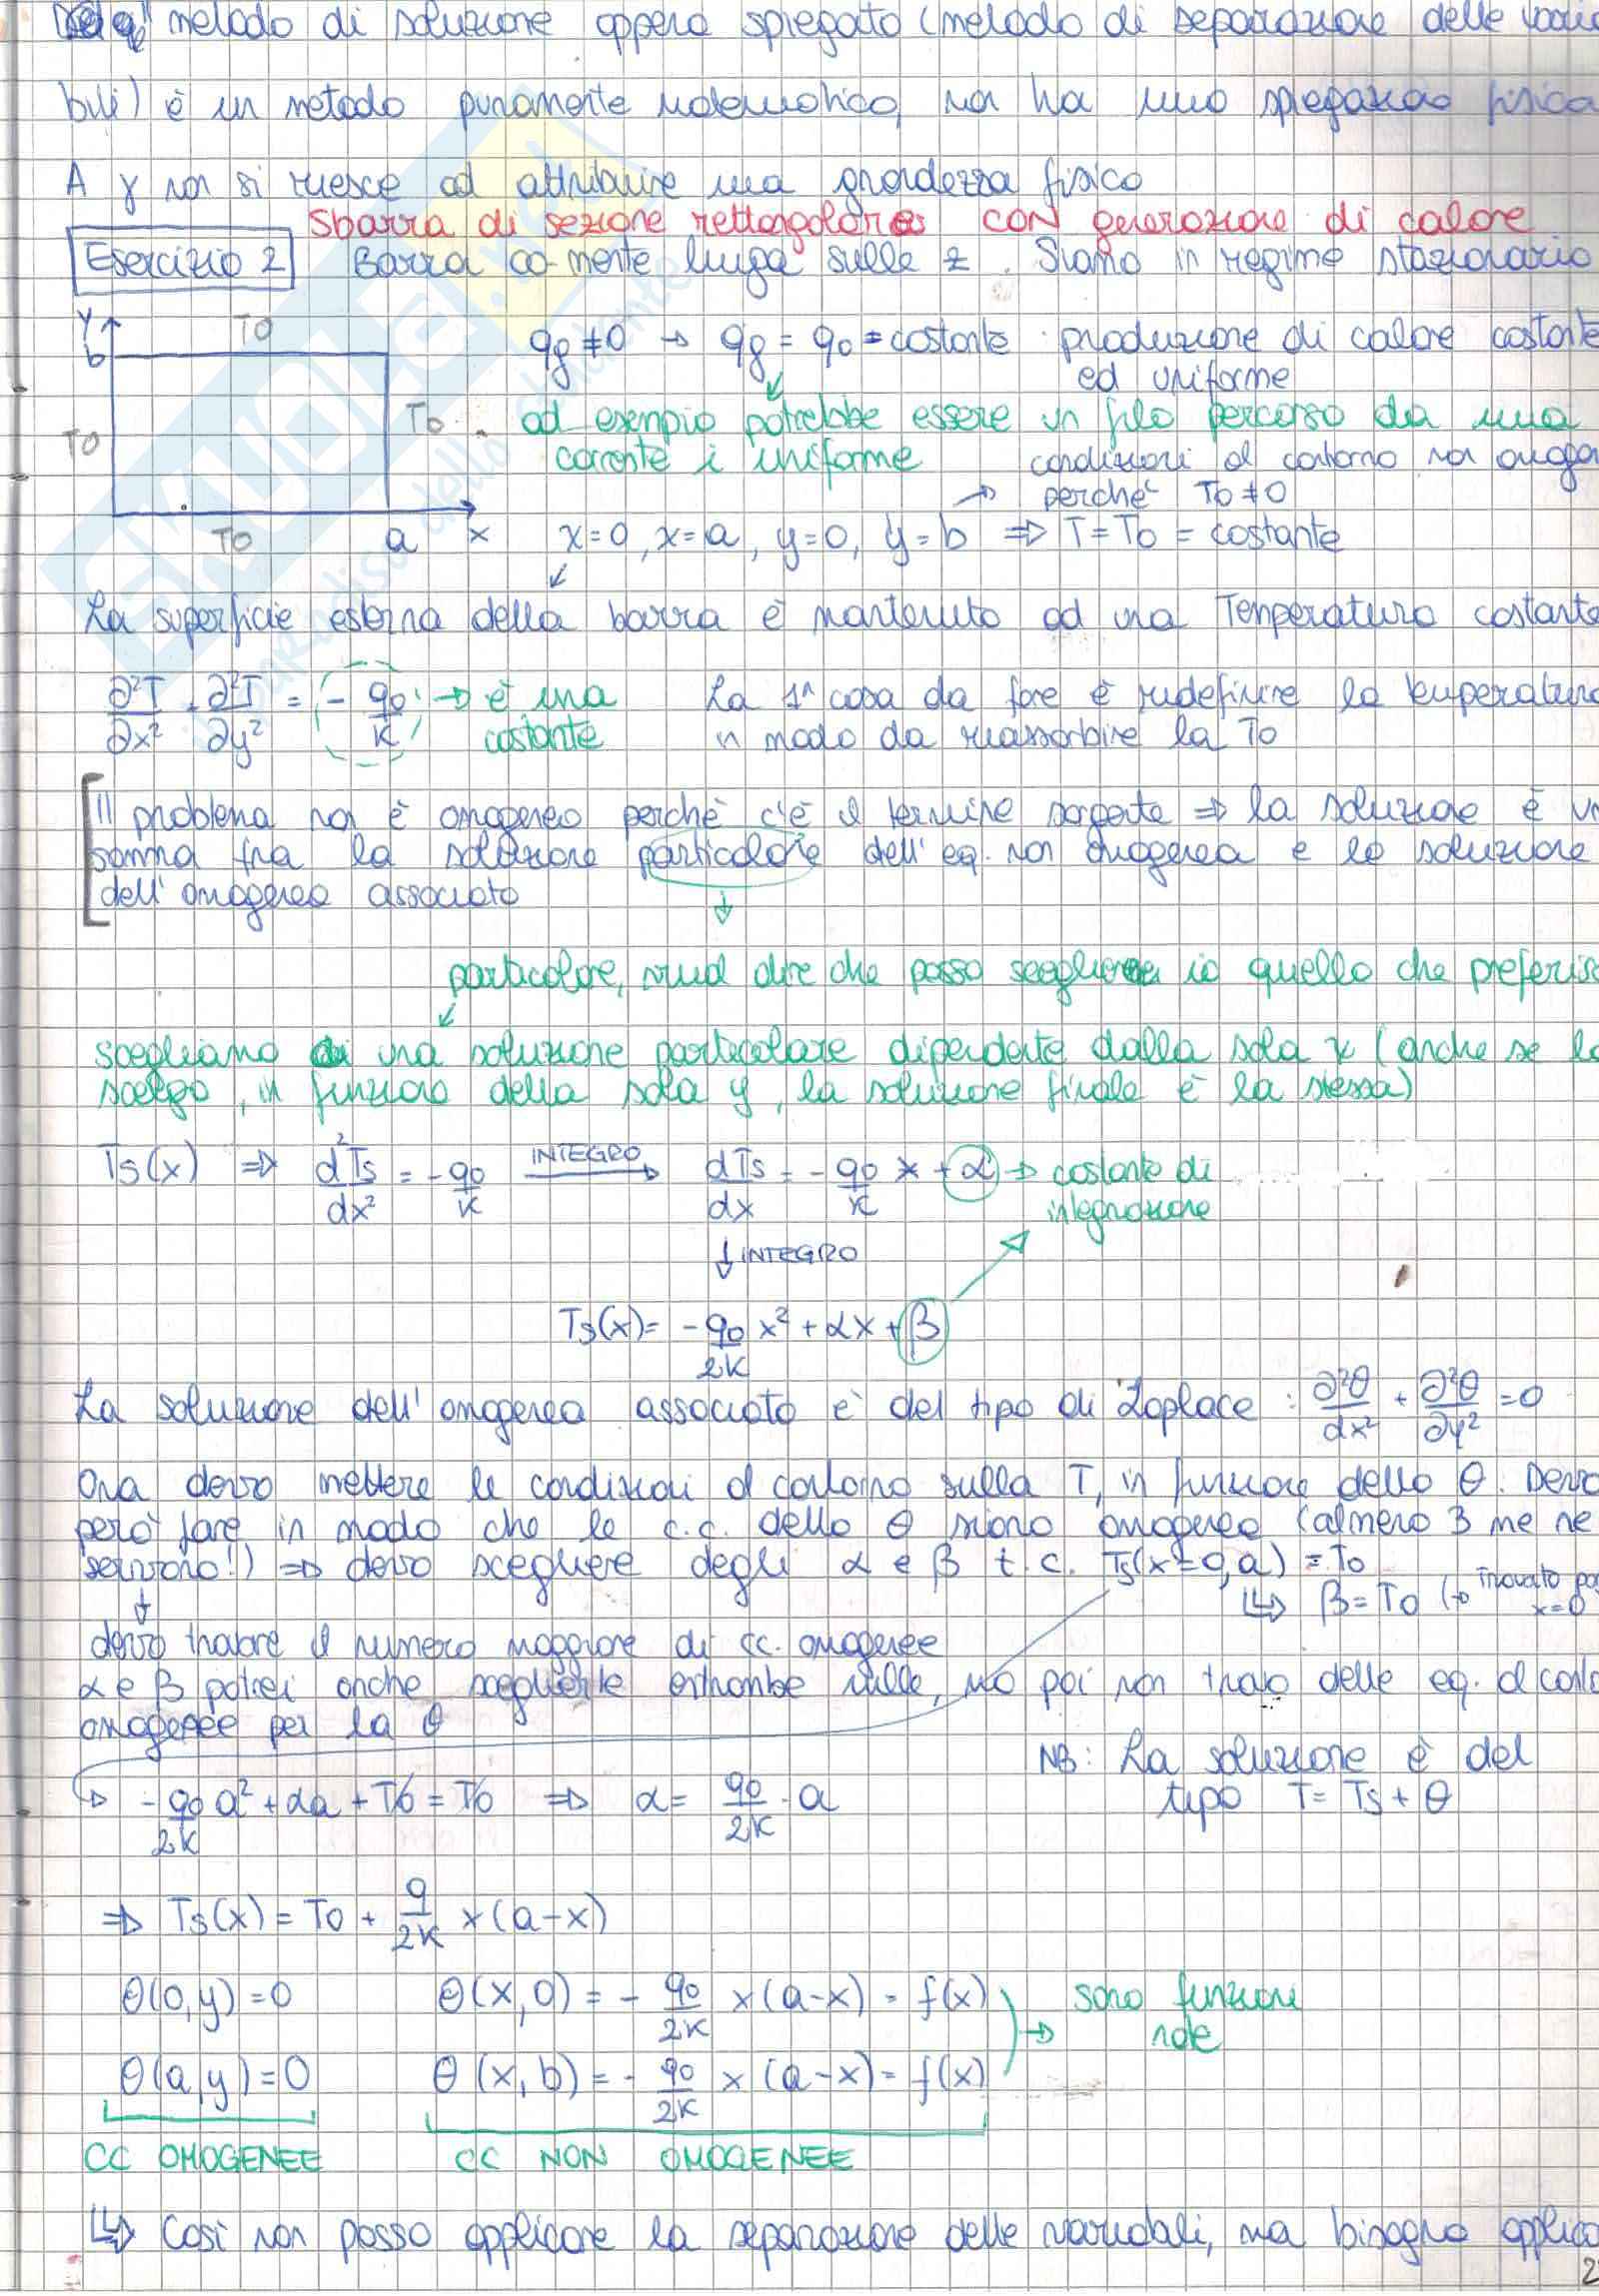 metodo di soluzione appena spiegato (metodo di separazione delle varia
bili) è un metodo puramente matematico, non ha una spiegazione fisica
A γ non si riesce ad attribuire una grandezza fisica
Sbarra di sezione rettangolare con generazione di calore
Esercizio 2 Barra ∞-mente lunga sulle z. Siamo in regime stazionario
y T0
b
T0 T0
T0 a x
qg ≠ 0 → qg = q0 = costante : produzione di calore costante
ed uniforme
ad esempio potrebbe essere un filo percorso da una
corrente i uniforme
condizioni al contorno non omoge
perché T0 ≠ 0
x=0, x=a, y=0, y=b ⇒ T = T0 = costante
La superficie esterna della barra è mantenuta ad una Temperatura costante
∂²T/∂x² + ∂²T/∂y² = - q0/K → è una costante
La 1ª cosa da fare è ridefinire la temperatura
in modo da riassorbire la T0
Il problema non è omogeneo perchè c'è il termine sorgente ⇒ la soluzione è un
somma fra la soluzione particolare dell'eq. non omogenea e la soluzione
dell'omogenea associata
particolare, vuol dire che posso scegliere io quello che preferis
scegliamo una soluzione particolare dipendente dalla sola x (anche se la
scelgo, in funzione della sola y, la soluzione finale è la stessa)
Ts(x) ⇒ d²Ts/dx² = - q0/K INTEGRO → dTs/dx = - q0/K x + α → costante di
integrazione
↓ INTEGRO
Ts(x) = - q0/2K x² + αx + β
La soluzione dell'omogenea associata è del tipo di Laplace : ∂²θ/dx² + ∂²θ/∂y² = 0
Ora devo mettere le condizioni al contorno sulla T, in funzione dello θ. Devo
però fare in modo che le c.c. dello θ siano omogenee (almeno 3 me ne
servono!) ⇒ devo scegliere degli α e β t.c. Ts(x=0,a) = T0
↳ β = T0 (→ Trovato
x=0
devo trovare il numero maggiore di cc. omogenee
α e β potrei anche sceglierle entrambe nulle, ma poi non trovo delle eq. al conto
omogenee per la θ
NB: La soluzione è del
tipo T = Ts + θ
- q0/2K a² + αa + T0 = T0 ⇒ α = q0/2K · a
⇒ Ts(x) = T0 + q/2K x(a-x)
θ(0,y) = 0 θ(x,0) = - q0/2K x(a-x) = f(x)
sono funzioni
note
θ(a,y) = 0 θ(x,b) = - q0/2K x(a-x) = f(x)
CC OMOGENEE CC NON OMOGENEE
↳ Così non posso applicare la separazione delle variabili, ma bisogna applica
2